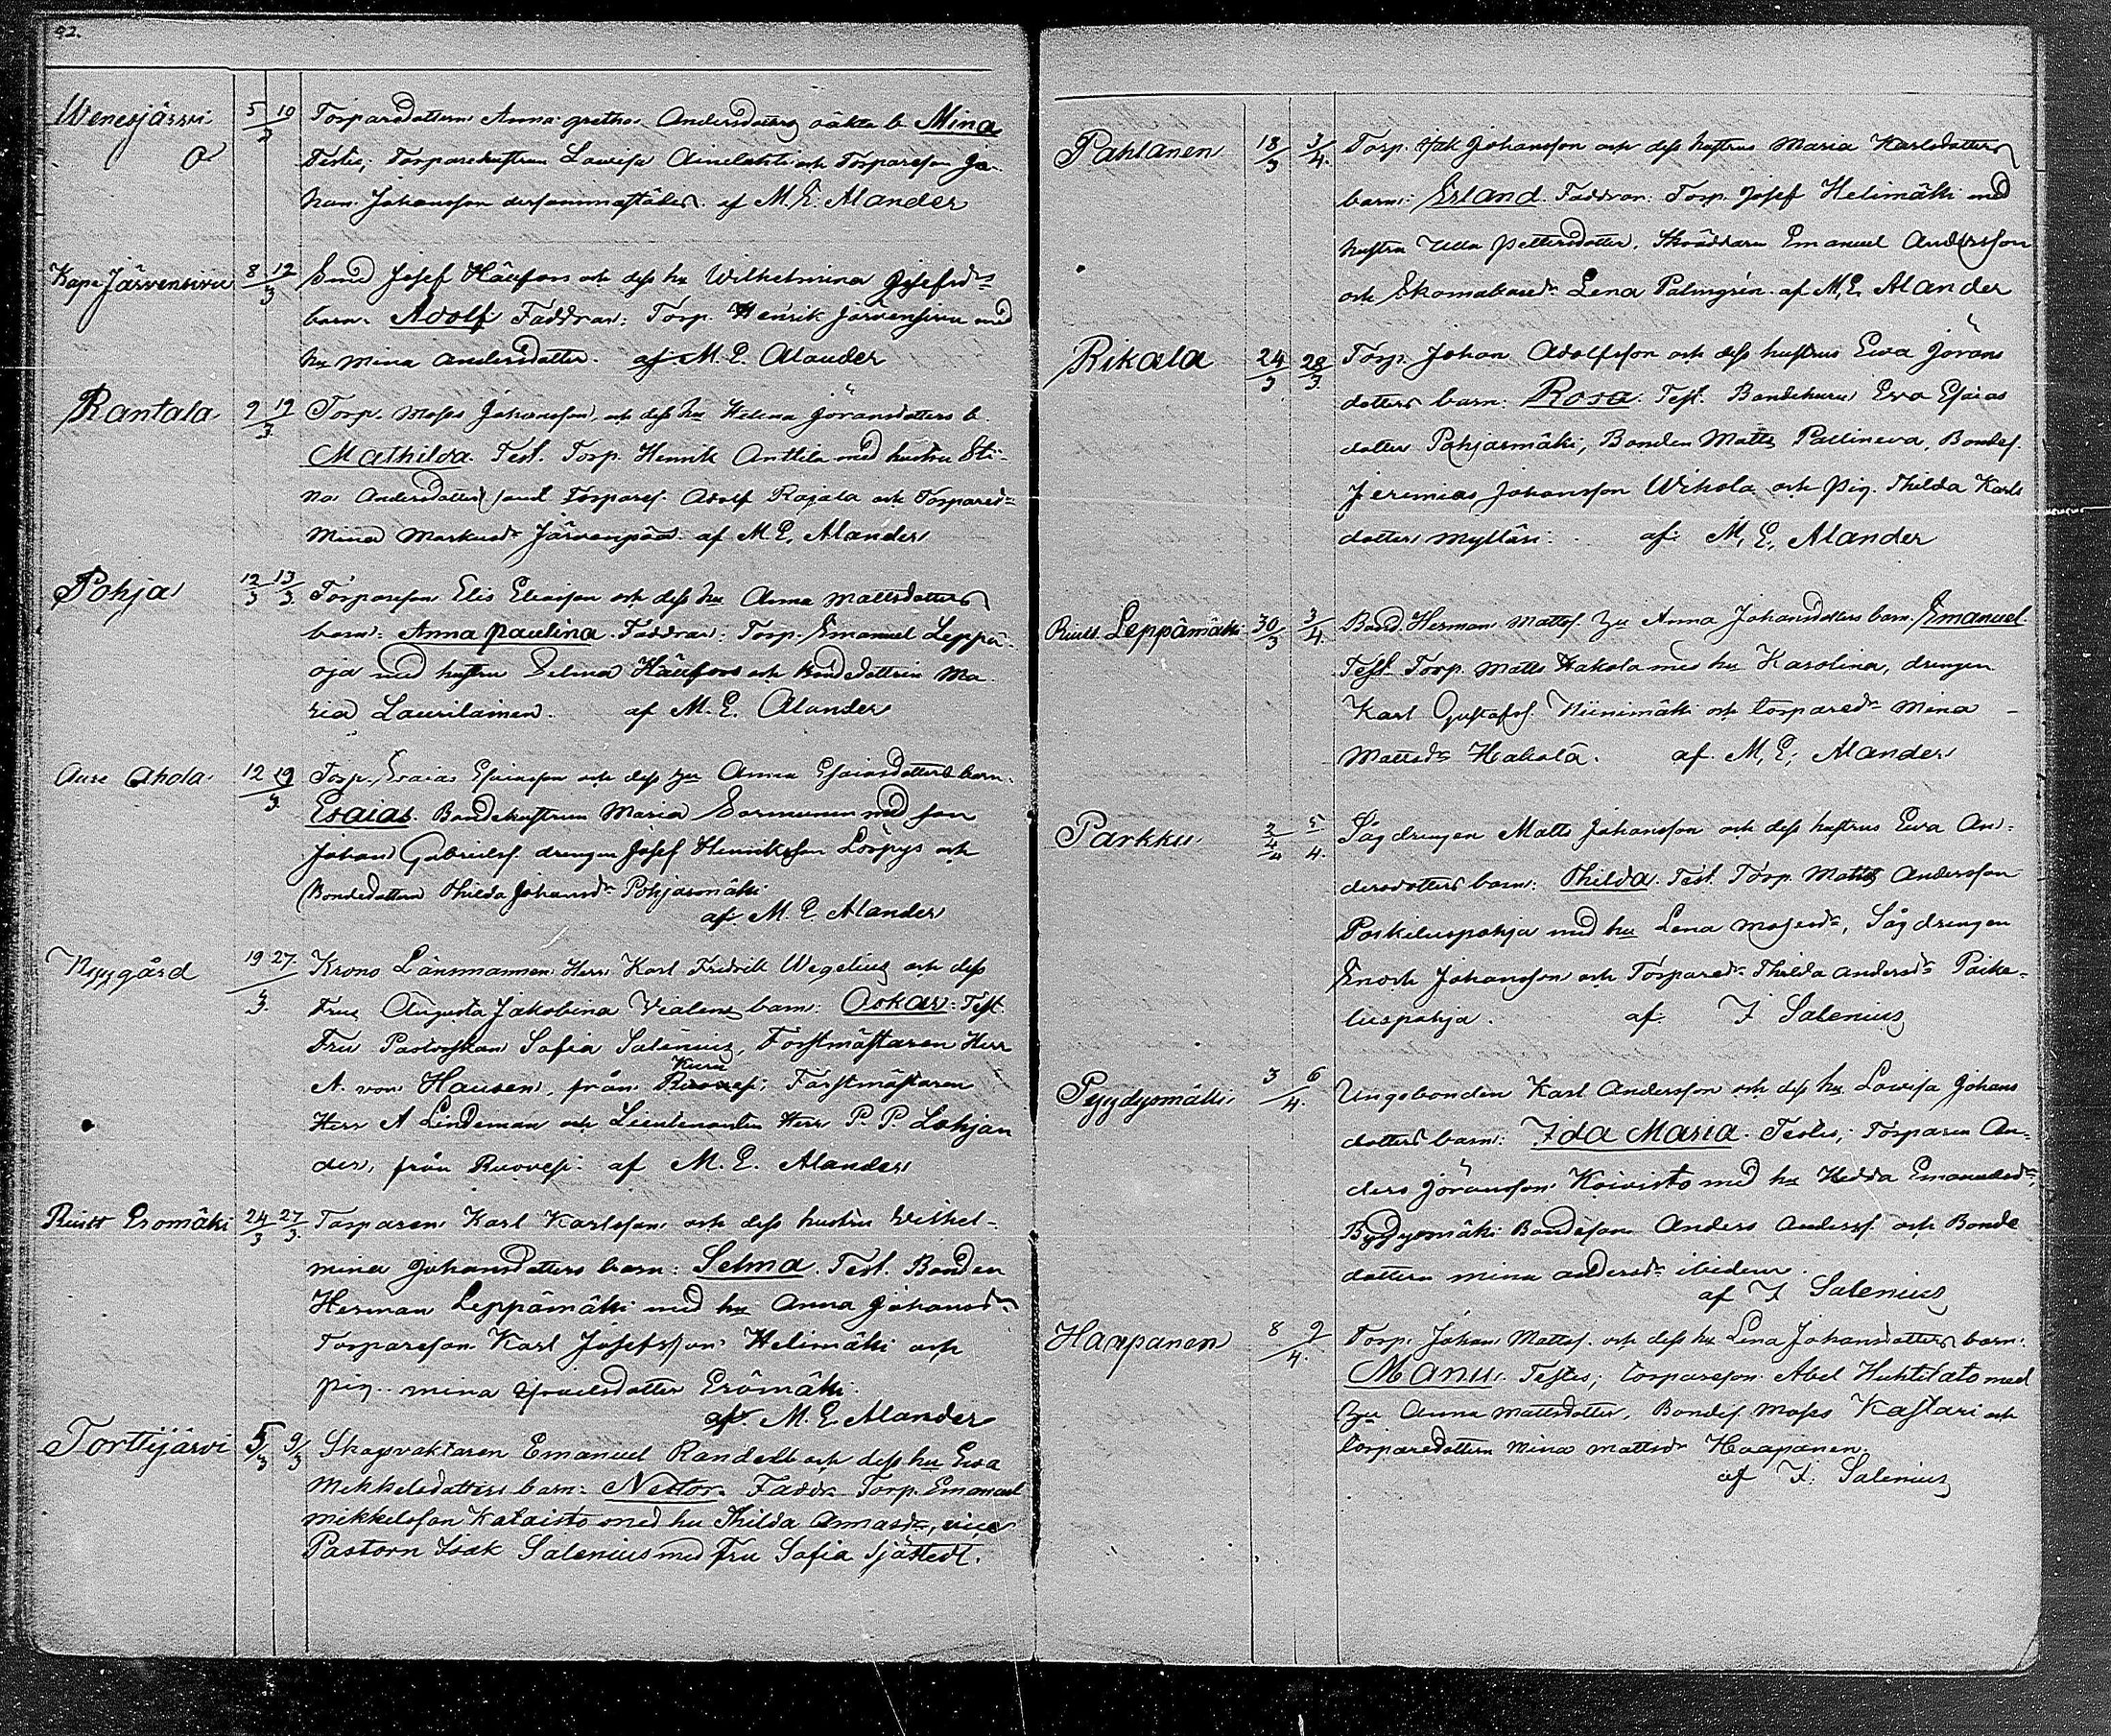 92.
Wenesjärvi 5 10/2 Torparedottern Anna Gretha Andersdotters oäkta b. Mina
Testes; Torparehustrun Lowisa och Torpareson Jo-
han Johansson dersammastädes. af M. E. Alander
Järvensivu 8 12/3 Smed Josef och dess hu Wilhelmina Josefsdr
barn. Adolf Faddrar: Torp. Henrik Järvensivu med
hu Mina Andersdotter. af M. E. Alander
Rantala 9 19/3 Torp. Moses Johansson, och dess hu Helena Göransdotters b.
Mathilda. Test. Torp. Henrik Anttila med hustru Sti-
na Andersdotter samt Torpares. Adolf Rajala och Torpared-
Mina Markusdr Järvenpää. af M. E. Alander
Pohja 12/3 13/3 Torpareson Elis Eliasson och dess hu Anna Mattsdotters
barn: Anna Paulina. Faddrar: Torp. Emanuel Leppä-
oja med hustru Selma och Bondedottren Ma-
ria Laurilainen. af M. E. Alander
Aure Ahola 12 19/3 Torp. Esaias Esaiasson och dess hu Anna Esaiasdotters barn.
Esaias. Bondehustrun Maria Sormunen med son
Johan Gabrielss. drengen Josef Henriksson och
Bondedottern Thilda Johansdr Pohjasmäki
af M. E. Alander
Nygård 19 27/3 Krono Länsmannen Herr Karl Fredrik Wegelius och dess
Fru Augusta Jakobina barn: Oskar. Test.
Fru Pastorskan Sofia Salenius, Forstmästaren Herr
A. von Hausen, från Kuru Ruovesi; Forstmästaren
Herr A Lindeman och Lieutenanten Herr P. P. Lohjan
der, från Ruovesi. af M. E. Alander
Eromäki 24/3 27/3 Torparen Karl Karlsson och dess hustru Wilhel-
mina Johansdotters barn: Selma. Test. Bonden
Herman Leppämäki med hu Anna Johansdr
Torpareson Karl Josefsson Helimäki och
pig. Mina Israelsdotter Erömäki.
af M. E. Alander
Torttijärvi 5/3 9/3 Skogsvaktaren Emanuel Randell och dess hu Ewa
Mikkelsdotters barn: Nestor. Faddr. Torp. Emanuel
Mikkelsson Kataisto med hu Thilda Annasdr, vice
Pastorn Isak Salenius med fru Sofia Sjöstedt.
Pahlanen 18/3 3/4. Torp. Isak Johansson och dess hustrus Maria Karlsdotters
barn: Erland. Faddrar: Torp. Josef Helimäki med
hustru Ulla Pettersdotter, Skräddaren Emanuel Andersson
och Lena Palmgrén. af M. E. Alander
Rikala 24/3 28/3 Torp. Johan Adolfsson och dess hustrus Ewa Görans
dotters barn: Rosa. Test. Bondehuru Eva Esaias
dotter Pohjasmäki, Bonden Matts Pallineva, Bondes.
Jeremias Johansson Wihola och pig. Thilda Karls
dotter Myllän. af. M. E. Alander
Leppämäki 30/3 3/4. Bond. Herman Mattss. hu Anna Johansdotters barn. Emanuel.
Test. Torp. Matts Hakola med hu Karolina, drengen
Karl Gustafss. Niinimäki och torparedr Mina
Mattsdr Hakola. af. M. E. Alander
Parkku 2/4 5/4. Sågdrengen Matts Johansson och dess hustrus Ewa An-
dersdotters barn: Thilda. Test. Torp. Matts Andersson
Poikeluspohja med hu Lena Mosesdr, Sågdrengen
Enoch Johansson och Torparedr Thilda Andersdr Poike-
luspohja. af. I Salenius
Pyydysmäki 3 6/4. Ungebonden Karl Andersson och dess hu Lowisa Johans
dotters barn: Ida Maria. Testes; Torparen An-
ders Göransson Koivisto med hu Hedda Emanuelsdr,
Bydysmäki Bondeson Anders Anderss. och Bonde
dottern Mina Andersdr ibidem.
af I Salenius
Haapanen 8 9/4. Torp. Johan Mattss. och dess hu Lena Johansdotters barn:
Manu. Testes; torpareson Abel Huhtilato med
hu Anna Mattsdotter, Bondes. Moses Kastari och
torparedottern Mina Mattsdr Haapanen.
af I. Salenius